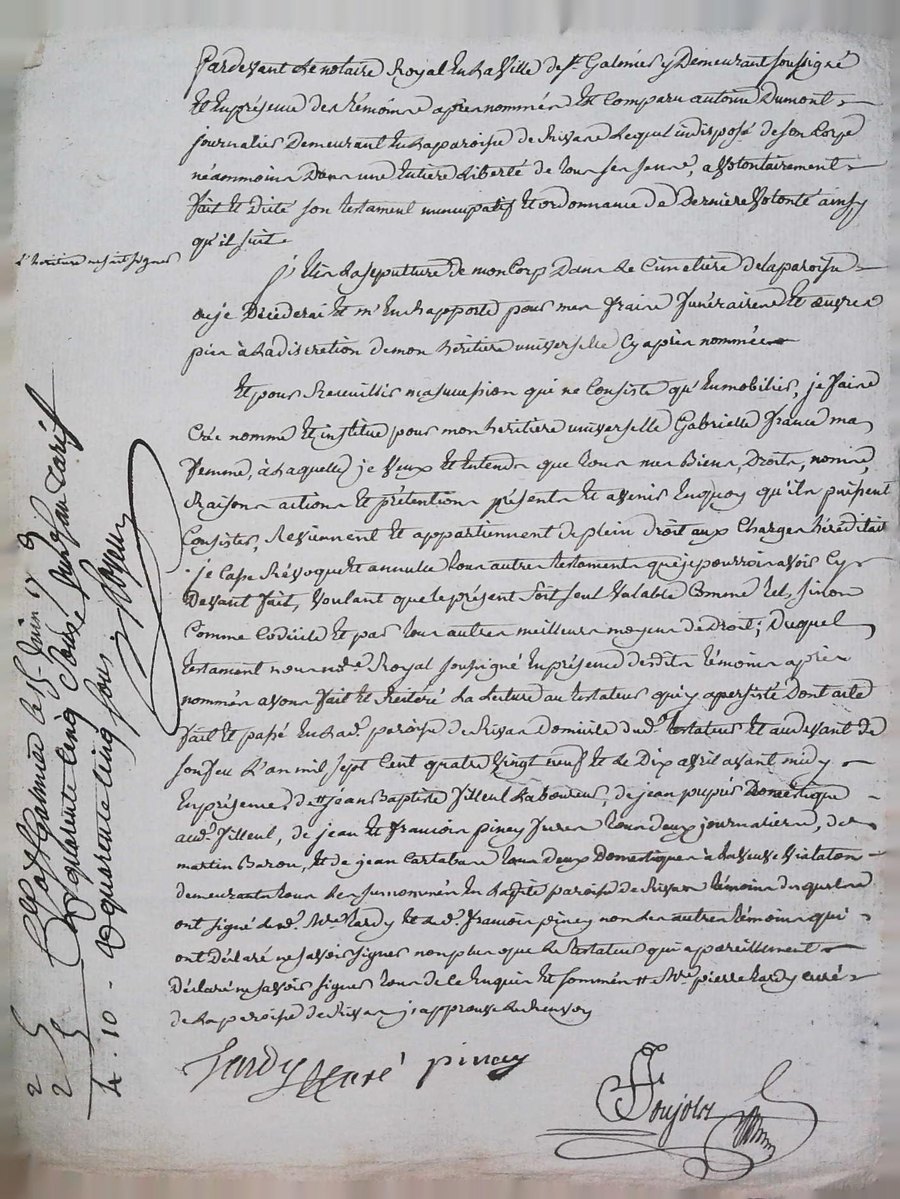 Pardevant Le notaire Royal En La Ville de st. Galmier y Demeurant soussigné
Et En présence des témoins après nommés Est Comparu antoine Dumont
journalier Demeurant En La paroisse de Rivas Lequel indisposé de son Corps
néammoins Dans une Entiere Liberté de tous ses sens, a Volontairement
fait Et Dicté son testament nuncupatif Et ordonnance de Derniere Volonté ainsy
qu'il suit
L'héritiere ne sait signer
j'Elis La sepulture de mon Corp Dans Le Cimetiere de la paroisse
ou je Décederai Et m'En Rapporte pour mes fraix funéraires Et œuvres
pies à La discretion de mon heritiere universelle Cy après nommée
Et pour Recueillir ma sucession qui ne Consiste qu'En mobilier, je faire
Crée nomme Et institue pour mon heritiere universelle Gabrielle france ma
femme, à Laquelle je Veux Et Entends que tous mes Biens, Droits, noms,
Raisons actions Et prétentions présents Et avenir Enquoy qu'ils puissent
Consister, Reviennent Et appartiennent de plein Droit aux Charges héréditair
je Casse Révoque Et annulle tous autres testaments que je pourrois avoir Cy
Devant fait, Voulant que le présent soit seul Valable Comme tel, sinon
Comme Codicile Et par tous autres meilleurs moyens de Droit; Duquel
testament nous nore. Royal soussigné En présence desdits témoins après
nommés avons fait Et Réiteré La Lecture au testateur qui y a persisté Dont acte
fait Et passé En Lad. paroisse de Rivas Domicile dud. testateur Et au devant de
son feu L'an mil sept Cent quatre Vingt neuf Et Le Dix avril avant midy
En présence de jean Baptiste Villeul Laboureur, de jean pupier Domestique
aud. Villeul, de jean Et francois piney tous deux journaliers, de
martin Baron, Et de jean Cartaban tous deux Domestiques à La Veuve Violaton
demeurants tous Les surnommés En Ladite paroisse de Rivas témoins desquels
ont signé Led. Mre. tardy Et Led. francois piney non Les autres témoins qui
ont Déclaré ne savoir signer non plus que Le testateur qui a pareillement
Déclaré ne savoir signer tous de ce Enquis Et sommés # Mre. pierre tardy curé
de La paroisse de Rivas j'approuve Le Renvoy
Tardy Curé piney
Poujolst
Clé a St Galmier le 15 Juin 1789
quarante cinq sous suivant tarif
quarente cinq sous
2 5
2 5
4 . 10